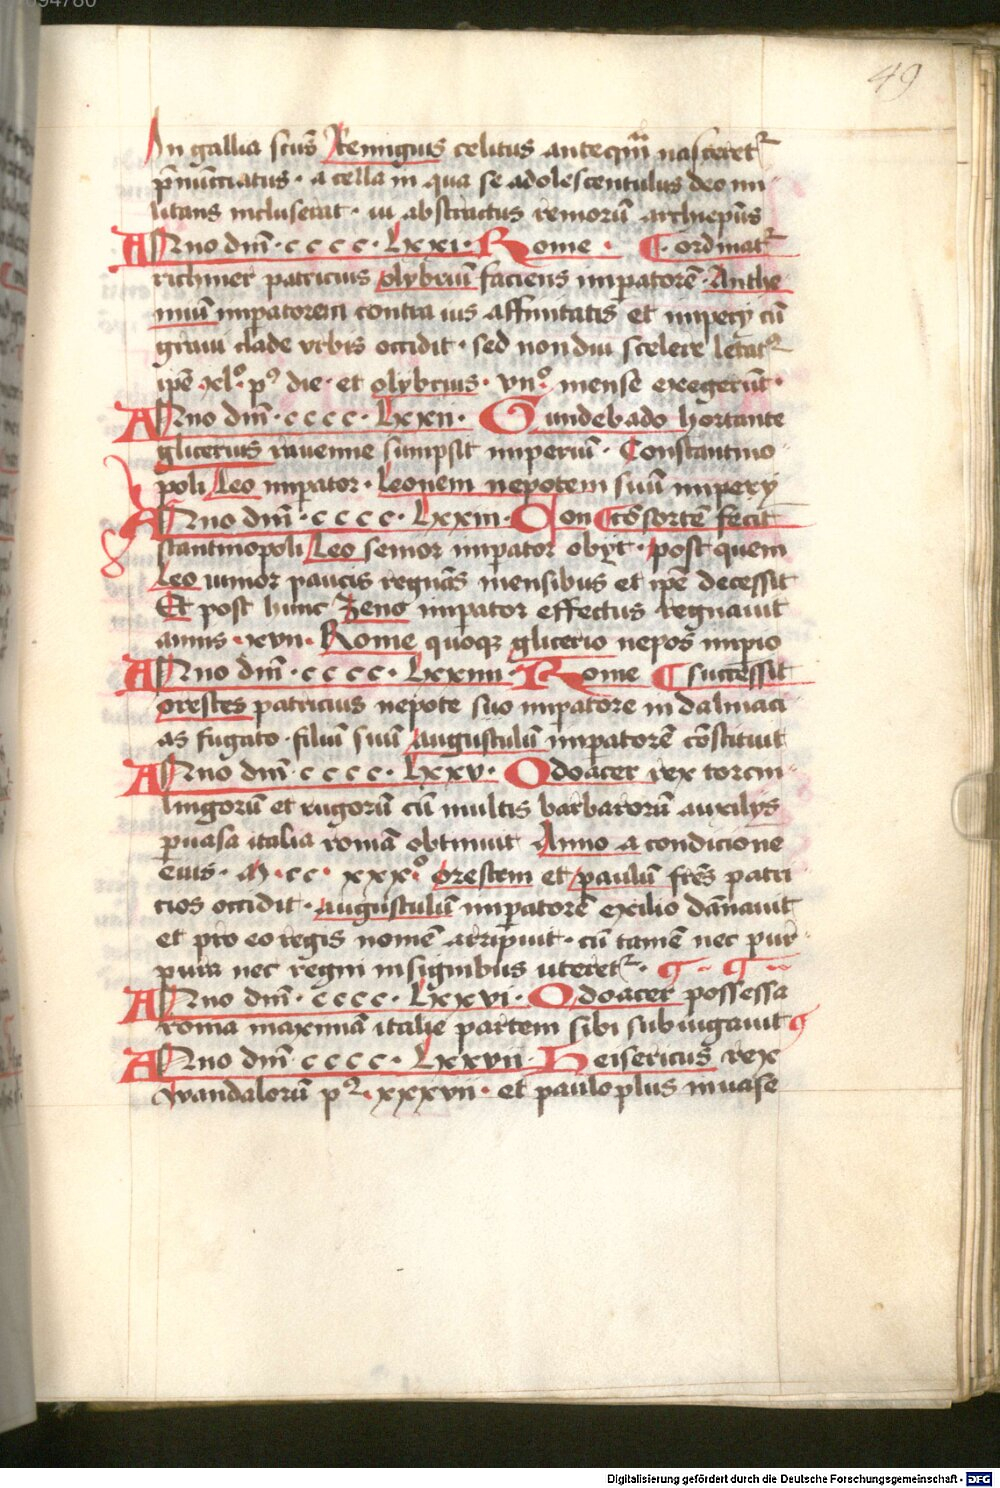 49
In gallia sc̄us Remigius celitus anteq̄m nasceret᷑
p̄nūcciatus · a cella in qua se adolescentulus deo mi-
litans incluserat · ui abstractus remorū archiep̄us
ANno dm̄ · cccc · Lxxi · Rome · ¶ · ordinat᷑
richmer patricius olybriū faciens imꝑatorē · Anthe
miū imꝑatorem contra ius affinitatis et impery cū
graui clade vrbis occidit · sed non diu scelere letat᷑
ip̄e · xlº · pꝰ die · et olybrius · vnº · mense exegerūt ·
ANno dm̄ · cccc · Lxxii · Gundebado hortante
glicerius rauenne sumpsit imperiū · Constantino-
poli Leo imꝑator · Leonem nepotem suū impery
ANno dm̄ · cccc · Lxxiii · Con ¶ cōsortē fecit
stantinopoli Leo senior imꝑator obyt · post quem
Leo iunior paucis regnās mensibus et ip̄e decessit
Et post hunc Zeno imꝑator effectus regnauit
annis · xvii · Rome quoqꝫ glicerio nepos imꝑio
ANno dm̄ · cccc · Lxxiiii · Rome ¶ successit
orestes patricius nepote suo imꝑatore in dalmaci
as fugato · filiū suū augustulū imꝑatorē cōstituit
ANno dm̄ · cccc · Lxxv · Odoacer rex torcin-
lingorū et rugorū cū multis barbarorū auxilys
ꝑuasa italia romā obtinuit Anno a condicione
eius · M · cc · xxxº · orestem et paulū fr̄es patri
cios occidit · augustulū imꝑatorē exilio dānauit
et pro eo regis nomē arripuit · cū tamē nec pur-
pura nec regni insignibus uteret᷑ ·
ANno dm̄ · cccc · Lxxvi · Odoacer possessa
roma maximā italie partem sibi subiugauit
ANno dm̄ · cccc · Lxxvii · Heisericus rex
wandalorū p᷑ · xxxvii · et paulo plus inuase
Digitalisierung gefördert durch die Deutsche Forschungsgemeinschaft - DFG